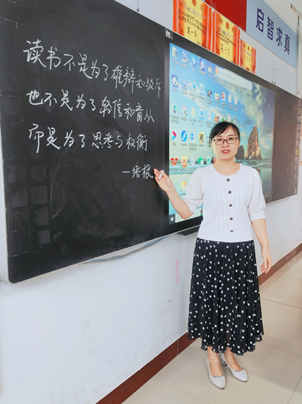 启智求真
读书不是为了雄辩和驳斥
也不是为了轻信和盲从
而是为了思考与权衡
—培根